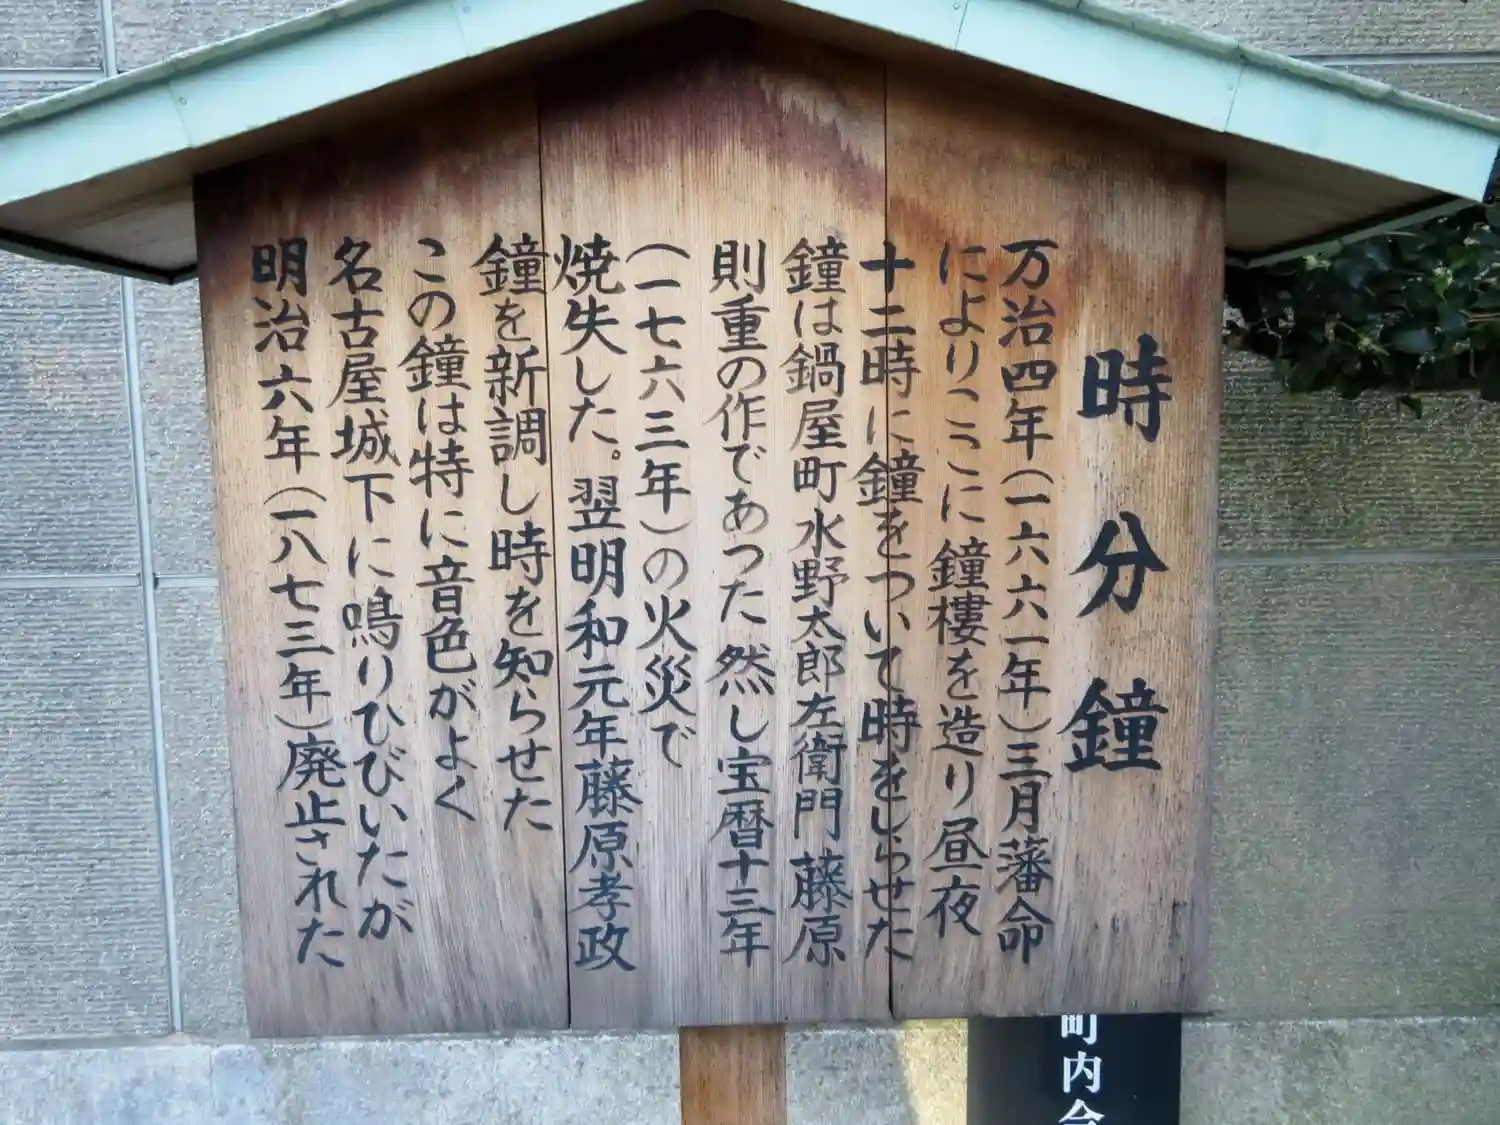 時分鐘
万治四年(一六六一年)三月藩命
によりここに鐘樓を造り昼夜
十二時に鐘をついて時をしらせた
鐘は鍋屋町水野太郎左衛門藤原
則重の作であつた然し宝暦十三年
(一七六三年)の火災で
焼失した。翌明和元年藤原孝政
鐘を新調し時を知らせた
この鐘は特に音色がよく
名古屋城下に鳴りひびいたが
明治六年(一八七三年)廃止された
町内会